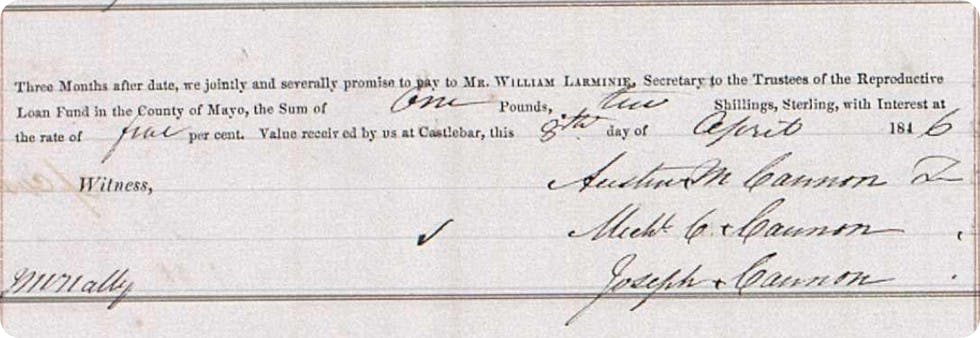 Three Months after date, we jointly and severally promise to pay to MR. WILLIAM LARMINIE, Secretary to the Trustees of the Reproductive
Loan Fund in the County of Mayo, the Sum of One Pounds, ten Shillings, Sterling, with Interest at
the rate of five per cent. Value received by us at Castlebar, this 8th day of April 1846
Witness,
Austin M Cannon
Michl C. x Cannon
McNally
Joseph x Cannon